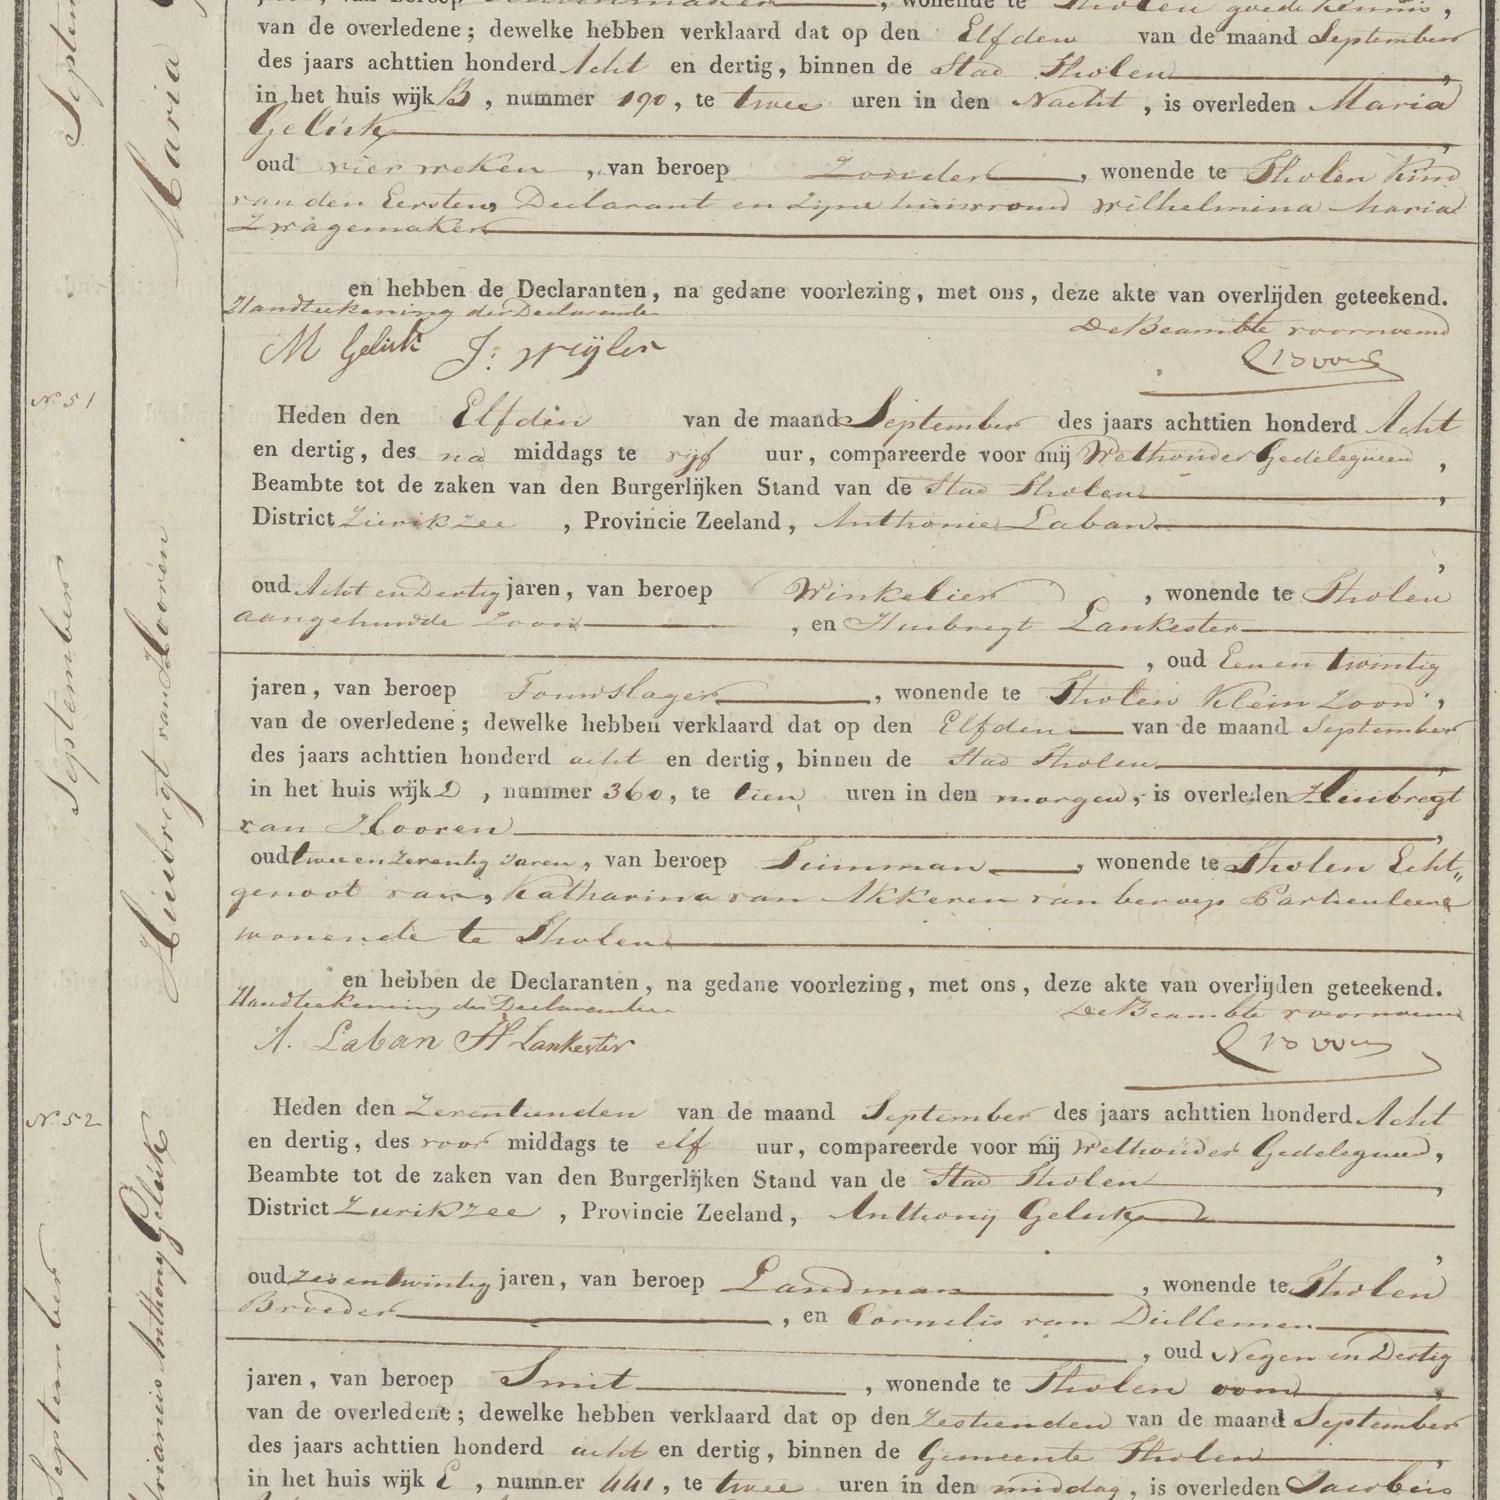 van de overledene; dewelke hebben verklaard dat op den Elfden van de maand September
des jaars achttien honderd Acht en dertig, binnen de Stad Tholen
in het huis wijk B, nummer 190, te twee uren in den Nacht, is overleden Maria
Geluk
oud vier weken, van beroep Zonder, wonende te Tholen Kind
van den Eersten Declarant en zijne huisvrouw Wilhelmina Maria
Zwagemaker
en hebben de Declaranten, na gedane voorlezing, met ons, deze akte van overlijden geteekend.
Handteekening der Declaranten
De Beambte voornoemd
M Geluk J: Wijler
No 51
September
Huibregt van Hooren
Heden den Elfden van de maand September des jaars achttien honderd Acht
en dertig, des na middags te vijf uur, compareerde voor mij Wethouder Gedelegueerd,
Beambte tot de zaken van den Burgerlijken Stand van de Stad Tholen,
District Zierikzee, Provincie Zeeland, Anthonie Laban,
oud Acht en Dertig jaren, van beroep Winkelier, wonende te Tholen
aangehuwde Zoon, en Huibregt Lankester
, oud Een en twintig
jaren, van beroep Touwslager, wonende te Tholen Klein Zoon,
van de overledene; dewelke hebben verklaard dat op den Elfden van de maand September
des jaars achttien honderd acht en dertig, binnen de Stad Tholen,
in het huis wijk D, nummer 360, te tien uren in den morgen, is overleden Huibregt
van Hooren,
oud twee en zeventig Jaren, van beroep Tuinman, wonende te Tholen Echt„
genoot van, Katharina van Akkeren van beroep Particuliere
wonende te Tholen
en hebben de Declaranten, na gedane voorlezing, met ons, deze akte van overlijden geteekend.
Handteekening der Declaranten
De Beambte voornoemd
A. Laban H Lankester
No 52
September
Anthony Geluk
Heden den Zeventienden van de maand September des jaars achttien honderd Acht
en dertig, des voor middags te elf uur, compareerde voor mij Wethouder Gedelegueerd,
Beambte tot de zaken van den Burgerlijken Stand van de Stad Tholen,
District Zierikzee, Provincie Zeeland, Anthonij Geluk,
oud zes en twintig jaren, van beroep Landman, wonende te Tholen
Broeder, en Cornelis van Dullemen
, oud Negen en Dertig
jaren, van beroep Smit, wonende te Tholen oom,
van de overledene; dewelke hebben verklaard dat op den Zestienden van de maand September
des jaars achttien honderd acht en dertig, binnen de Gemeente Tholen,
in het huis wijk E, nummer 441, te twee uren in den middag, is overleden Jacobus